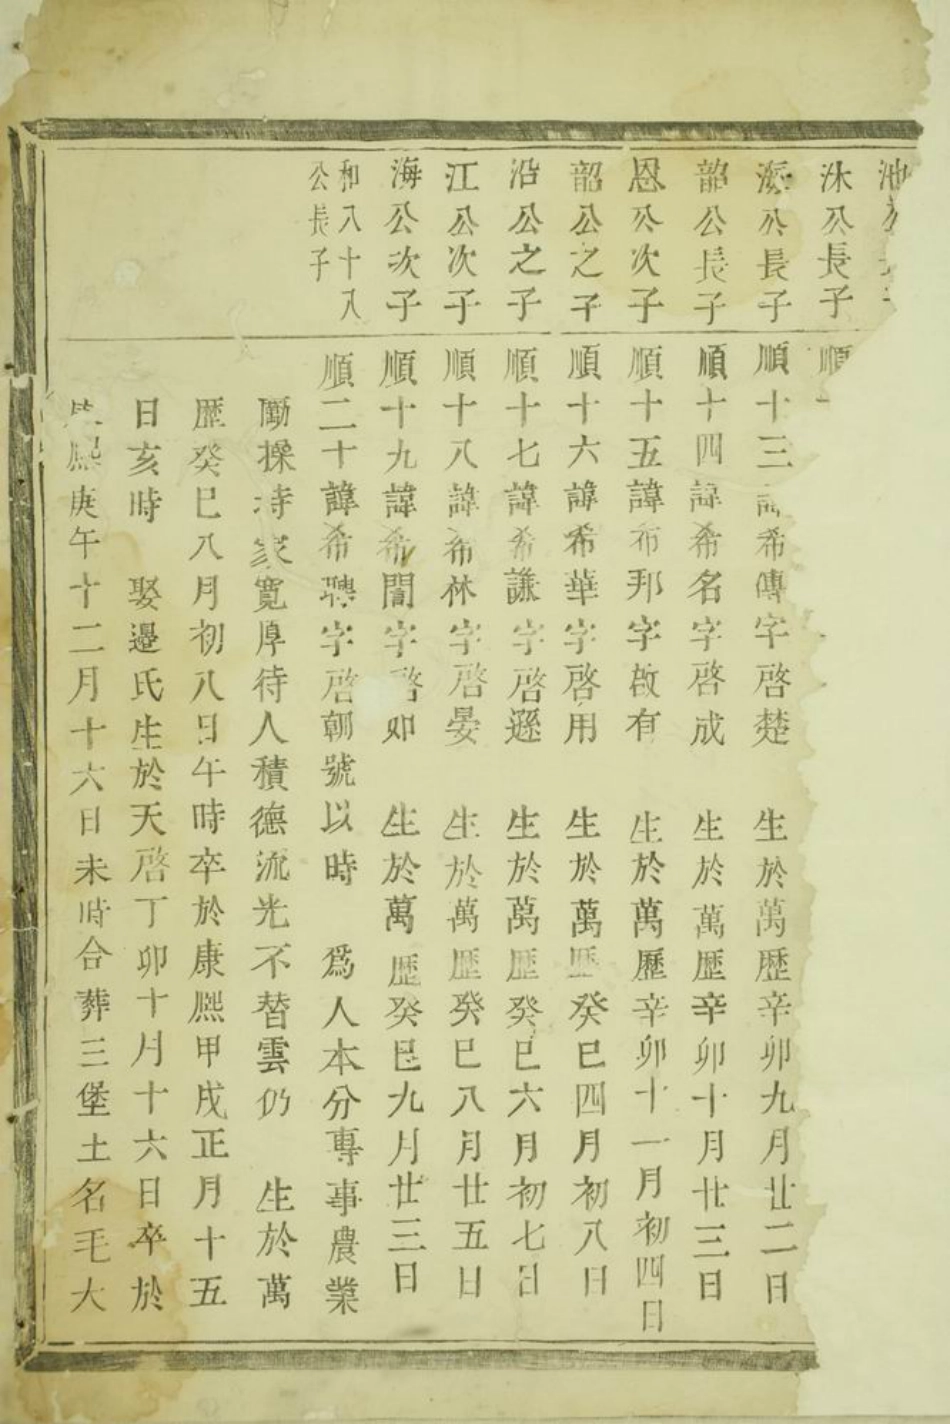 池公
洙公長子
順
海公長子
順十三諱希傳字啓楚 生於萬歷辛卯九月廿二日
韶公長子
順十四諱希名字啓成 生於萬歷辛卯十月廿三日
恩公次子
順十五諱希邦字啟有 生於萬歷辛卯十一月初四日
韶公之子
順十六諱希華字啓用 生於萬歷癸巳四月初八日
沿公之子
順十七諱希謙字啓遜 生於萬歷癸巳六月初七日
江公次子
順十八諱希林字啓晏 生於萬歷癸巳八月廿五日
海公次子
順十九諱希誾字啓卯 生於萬歷癸巳九月廿三日
和八十八
公長子
順二十諱希聘字啓朝號以時 爲人本分專事農業
勵操持家寬厚待人積德流光不替雲仍 生於萬
歷癸巳八月初八日午時卒於康熙甲戌正月十五
日亥時 娶邉氏生於天啓丁卯十月十六日卒於
熙庚午十二月十六日未時合葬三堡土名毛大